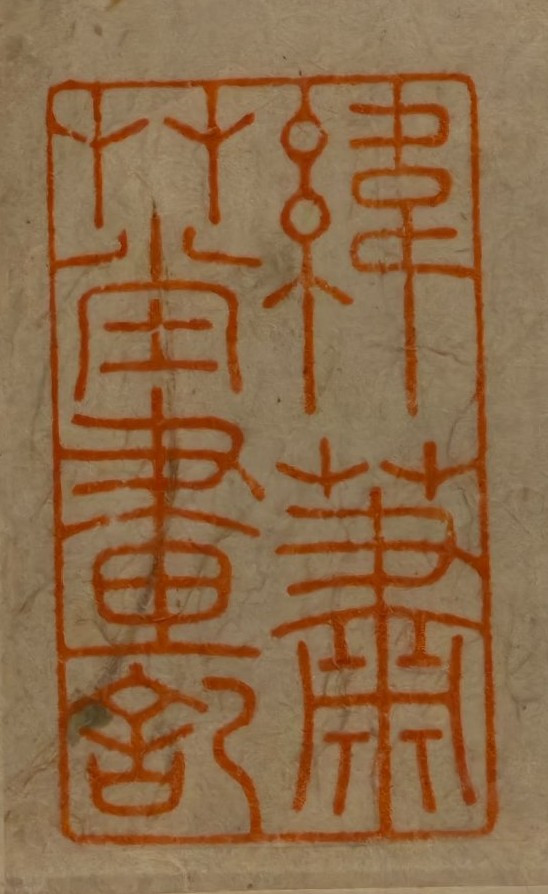 緯蕭
草堂畫記